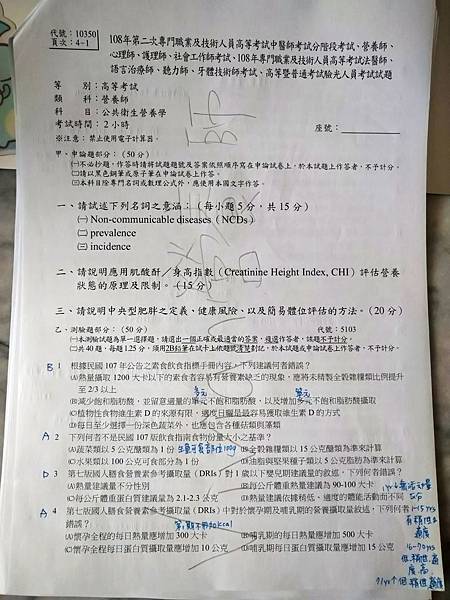 代號：10350
頁次：4-1
108年第二次專門職業及技術人員高等考試中醫師考試分階段考試、營養師、
心理師、護理師、社會工作師考試、108年專門職業及技術人員高等考試法醫師、
語言治療師、聽力師、牙體技術師考試、高等暨普通考試驗光人員考試試題
等　　別：高等考試
類　　科：營養師
科　　目：公共衛生營養學
考試時間：2 小時
座號：
※注意：禁止使用電子計算器。
甲、申論題部分：（50 分）
㈠不必抄題，作答時請將試題題號及答案依照順序寫在申論試卷上，於本試題上作答者，不予計分。
㈡請以黑色鋼筆或原子筆在申論試卷上作答。
㈢本科目除專門名詞或數理公式外，應使用本國文字作答。
一、請試述下列名詞之意涵：（每小題 5 分，共 15 分）
㈠ Non-communicable diseases（NCDs）
㈡ prevalence
㈢ incidence
二、請說明應用肌酸酐／身高指數（Creatinine Height Index, CHI）評估營養
狀態的原理及限制。（15 分）
三、請說明中央型肥胖之定義、健康風險、以及簡易體位評估的方法。（20 分）
乙、測驗題部分：（50 分）
代號：5103
㈠本測驗試題為單一選擇題，請選出一個正確或最適當的答案，複選作答者，該題不予計分。
㈡共 40 題，每題 1.25 分，須用2B鉛筆在試卡上依題號清楚劃記，於本試題或申論試卷上作答者，不予計分。
B 1 根據民國 107 年公告之素食飲食指標手冊內容，下列建議何者錯誤？
(A)熱量攝取 1200 大卡以下的素食者容易有營養素缺乏的現象，應將未精製全穀雜糧類比例提升
至 2/3 以上
多元 單元
(B)減少飽和脂肪酸，並留意適量的單元不飽和脂肪酸，以及增加多元不飽和脂肪酸攝取
(C)植物性食物維生素 D 的來源有限，適度日曬是最容易獲取維生素 D 的方式
(D)每日至少選擇一份深色蔬菜外，也應包含各種菇類與藻類
A 2 下列何者不是民國 107 版飲食指南食物份量大小之基準？
(A)蔬菜類以 5 公克醣類為 1 份 生重可食部位100g (B)全穀雜糧類以 15 公克醣類為準來計算
(C)水果類以 100 公克可食部分為 1 份 (D)油脂與堅果種子類以 5 公克脂肪為準來計算
D 3 第七版國人膳食營養素參考攝取量（DRIs）對 1 歲以下嬰兒期建議量的敘述，下列何者錯誤？
(A)熱量建議量不分性別 (B)每公斤體重熱量建議量為 90-100 大卡
(C)每公斤體重蛋白質建議量為 2.1-2.3 公克 (D)熱量建議依據稍低、適度的體能活動而不同
A 4 第七版國人膳食營養素參考攝取量（DRIs）中對於懷孕期及哺乳期的營養攝取量敘述，下列何者
錯誤？ 第1期不用加kcal
(A)懷孕全程的每日熱量應增加 300 大卡 (B)哺乳期的每日熱量應增加 500 大卡
(C)懷孕全程每日蛋白質攝取量應增加 10 公克 (D)哺乳期每日蛋白質攝取量應增加 15 公克